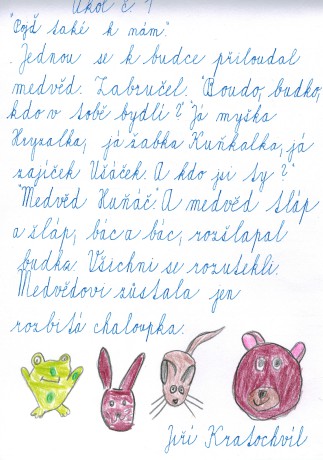 Úkol č. 1
"Pojď také k nám."
. Jednou se k budce přiloudal
medvěd. Zabručel. "Boudo, budko,
kdo v tobě bydlí?" "Já myška
Hryzalka, já žabka Kuňkalka, já
zajíček Ušáček. A kdo jsi ty?"
"Medvěd Huňáč." A medvěd tláp
a žláp, bác a bác, rozšlapal
budka. Všichni se rozutekli.
Medvědovi zůstala jen
rozbitá chaloupka.
Jiří Kratochvíl